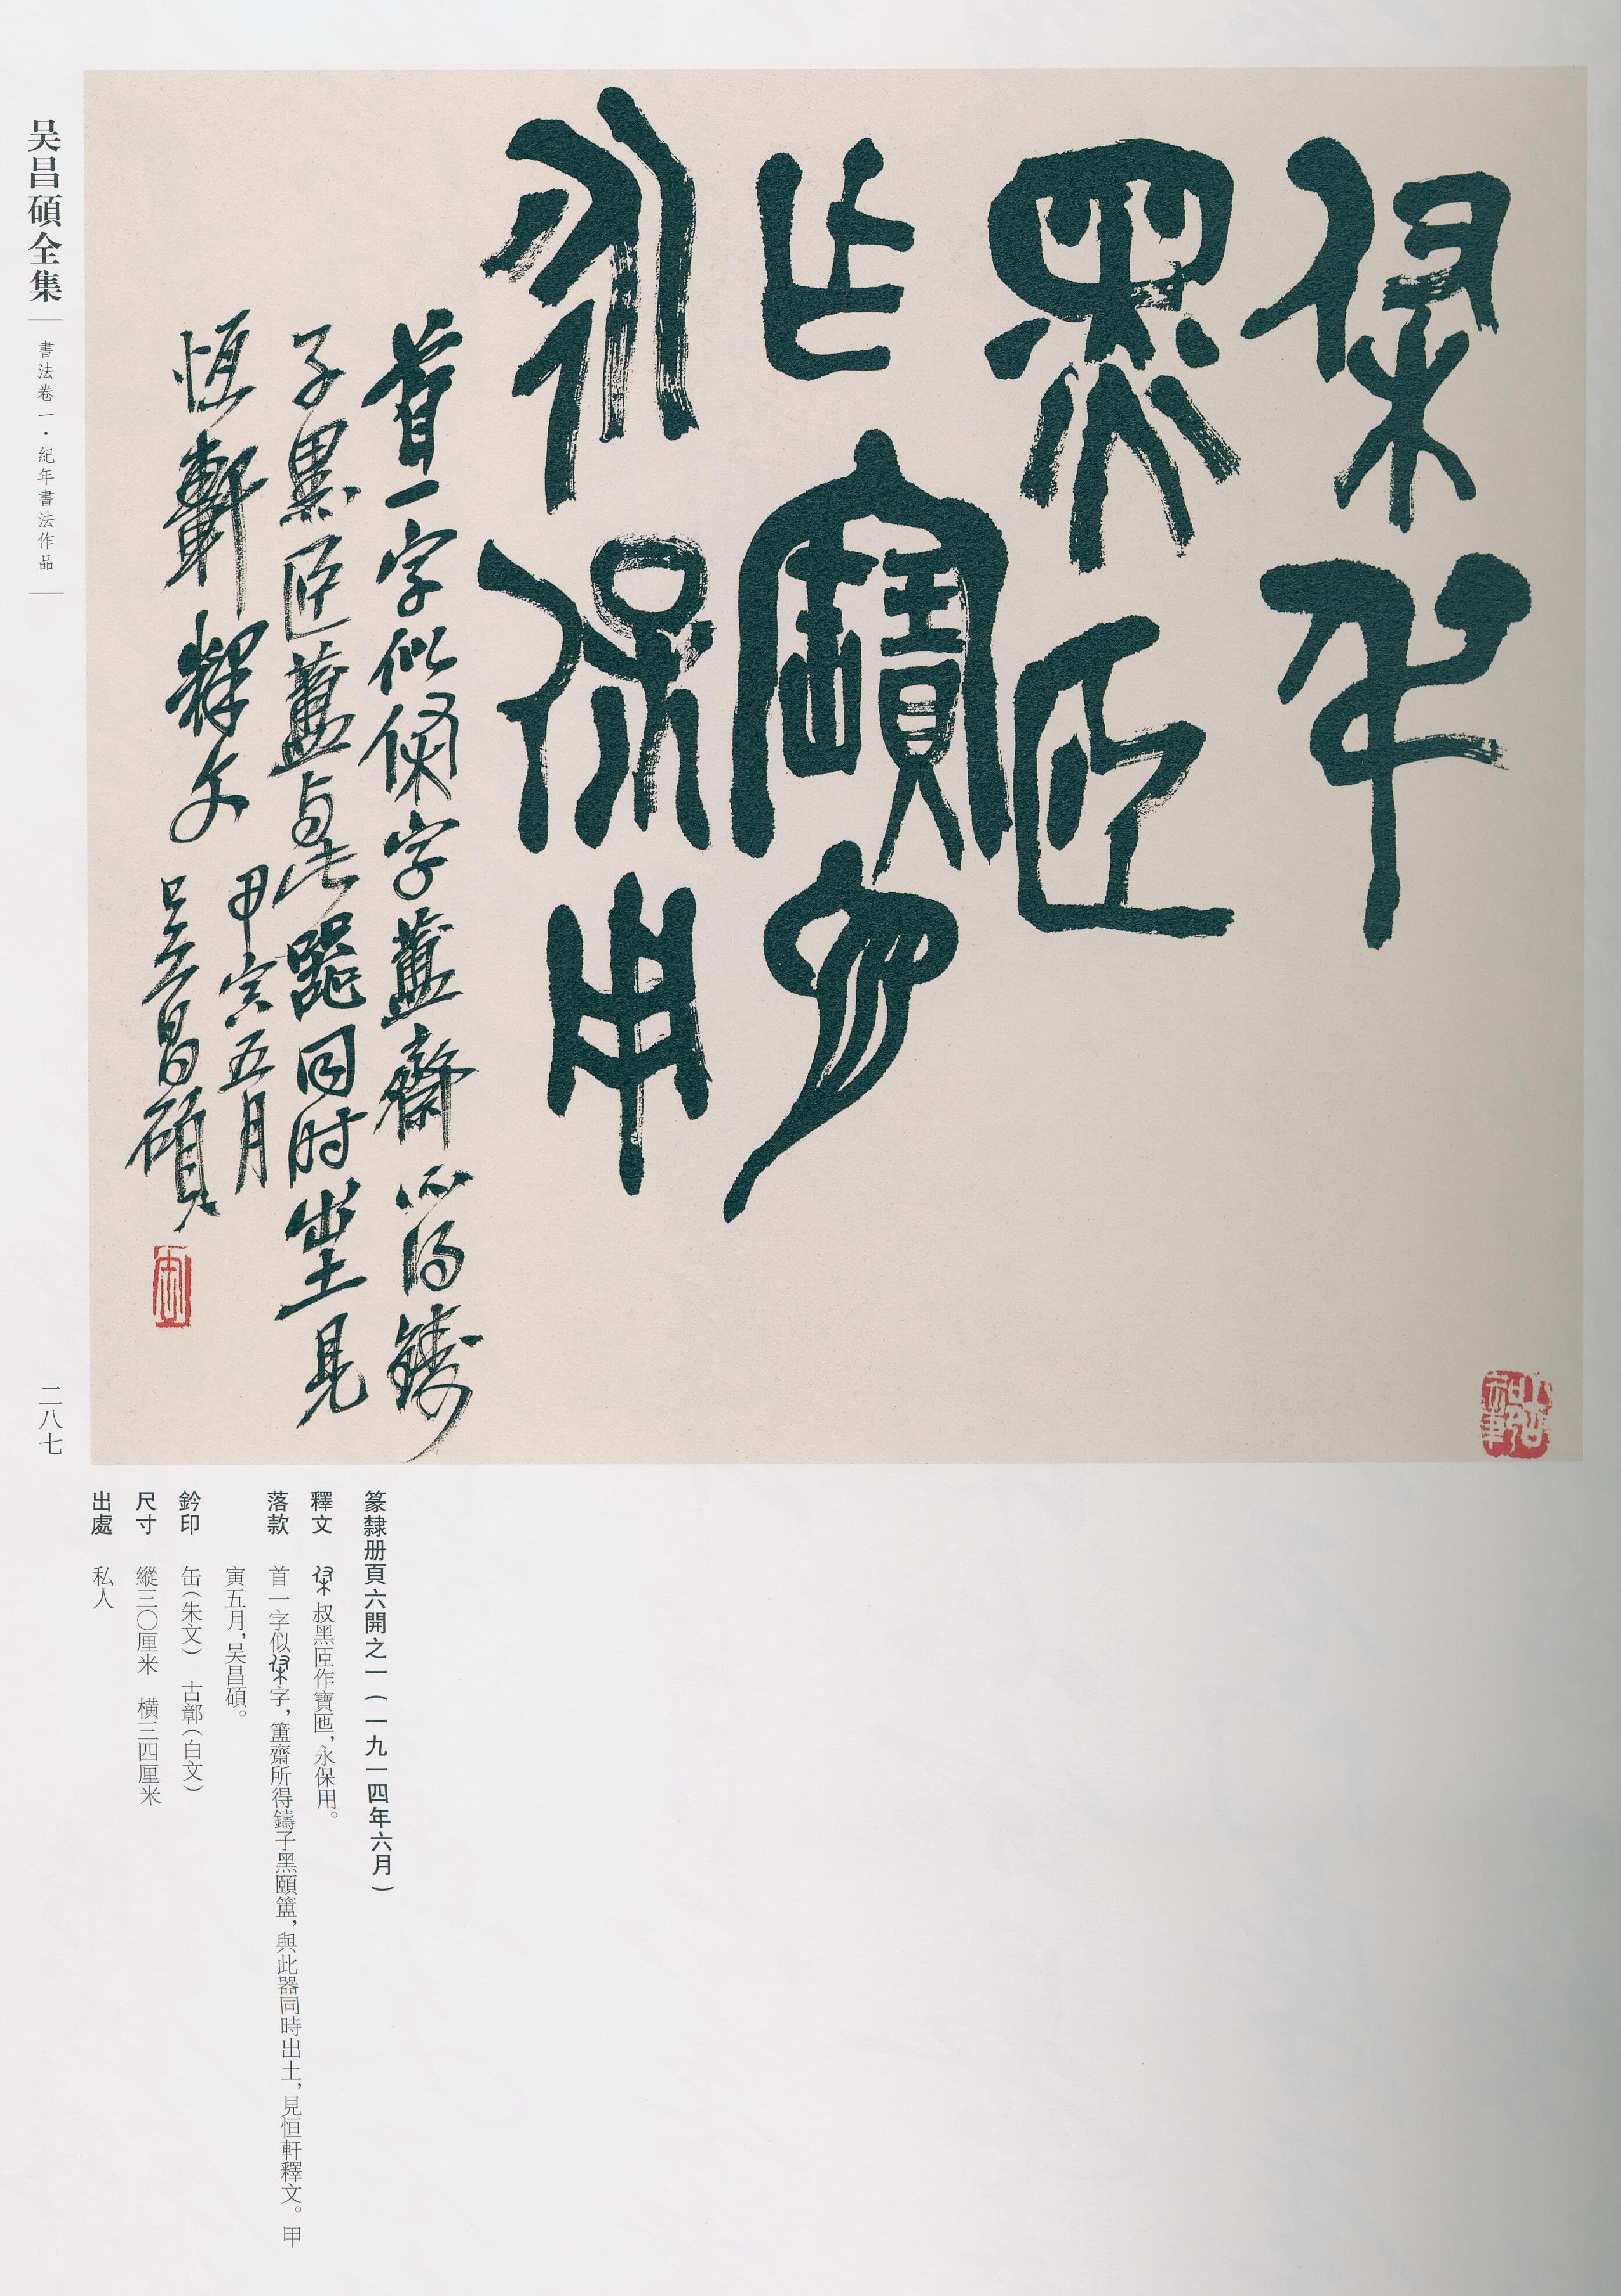 叔
黑𦣞
作寶匜
永保用
首一字似字簠齋所得鑄
子黑𦣞簠与此器同时出土見
恆軒釋文
甲寅五月
吴昌碩
缶
古鄣
吴昌碩全集
書法卷一·紀年書法作品
二八七
篆隸册頁六開之一（一九一四年六月）
釋文 叔黑𦣞作寶匜，永保用。
落款 首一字似字，簠齋所得鑄子黑頤簠，與此器同時出土，見恒軒釋文。甲
寅五月，吴昌碩。
鈐印 缶（朱文） 古鄣（白文）
尺寸 縱三〇厘米 横三四厘米
出處 私人